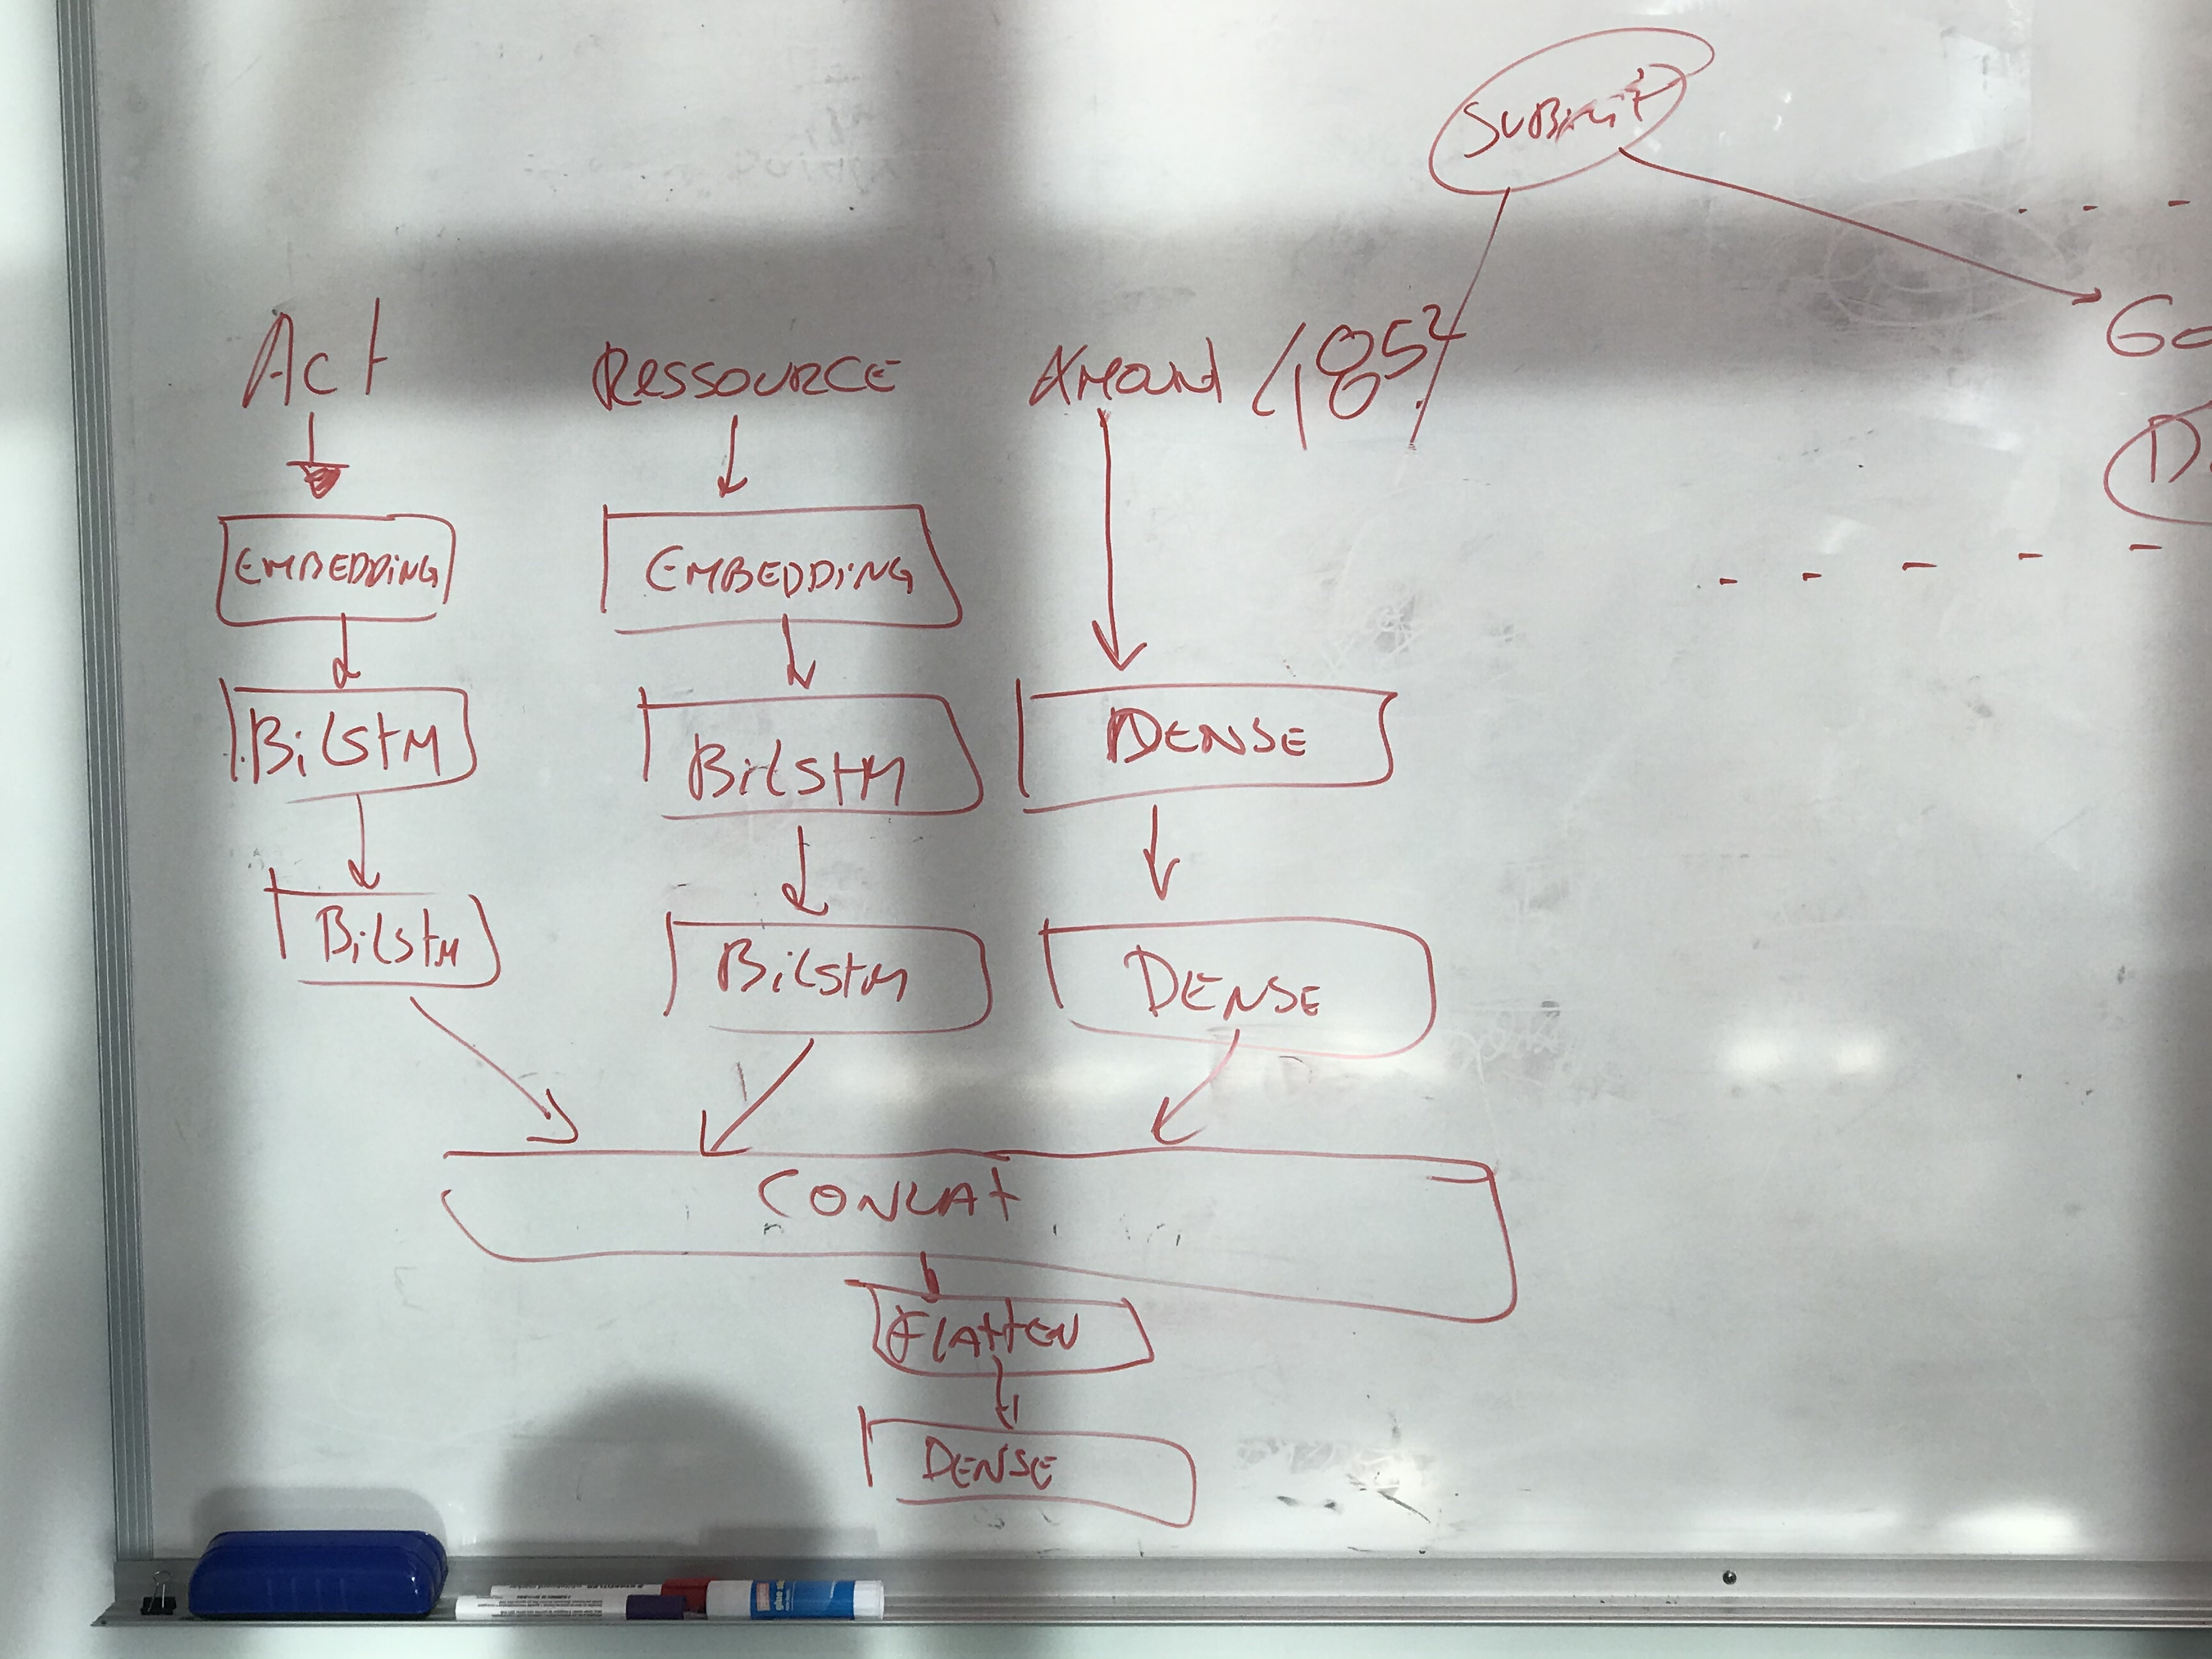 SUBMIT
Act RESSOURCE Amount
EMBEDDING EMBEDDING
BiLSTM BiLSTM DENSE
BiLSTM BiLSTM DENSE
CONCAT
FLATTEN
DENSE